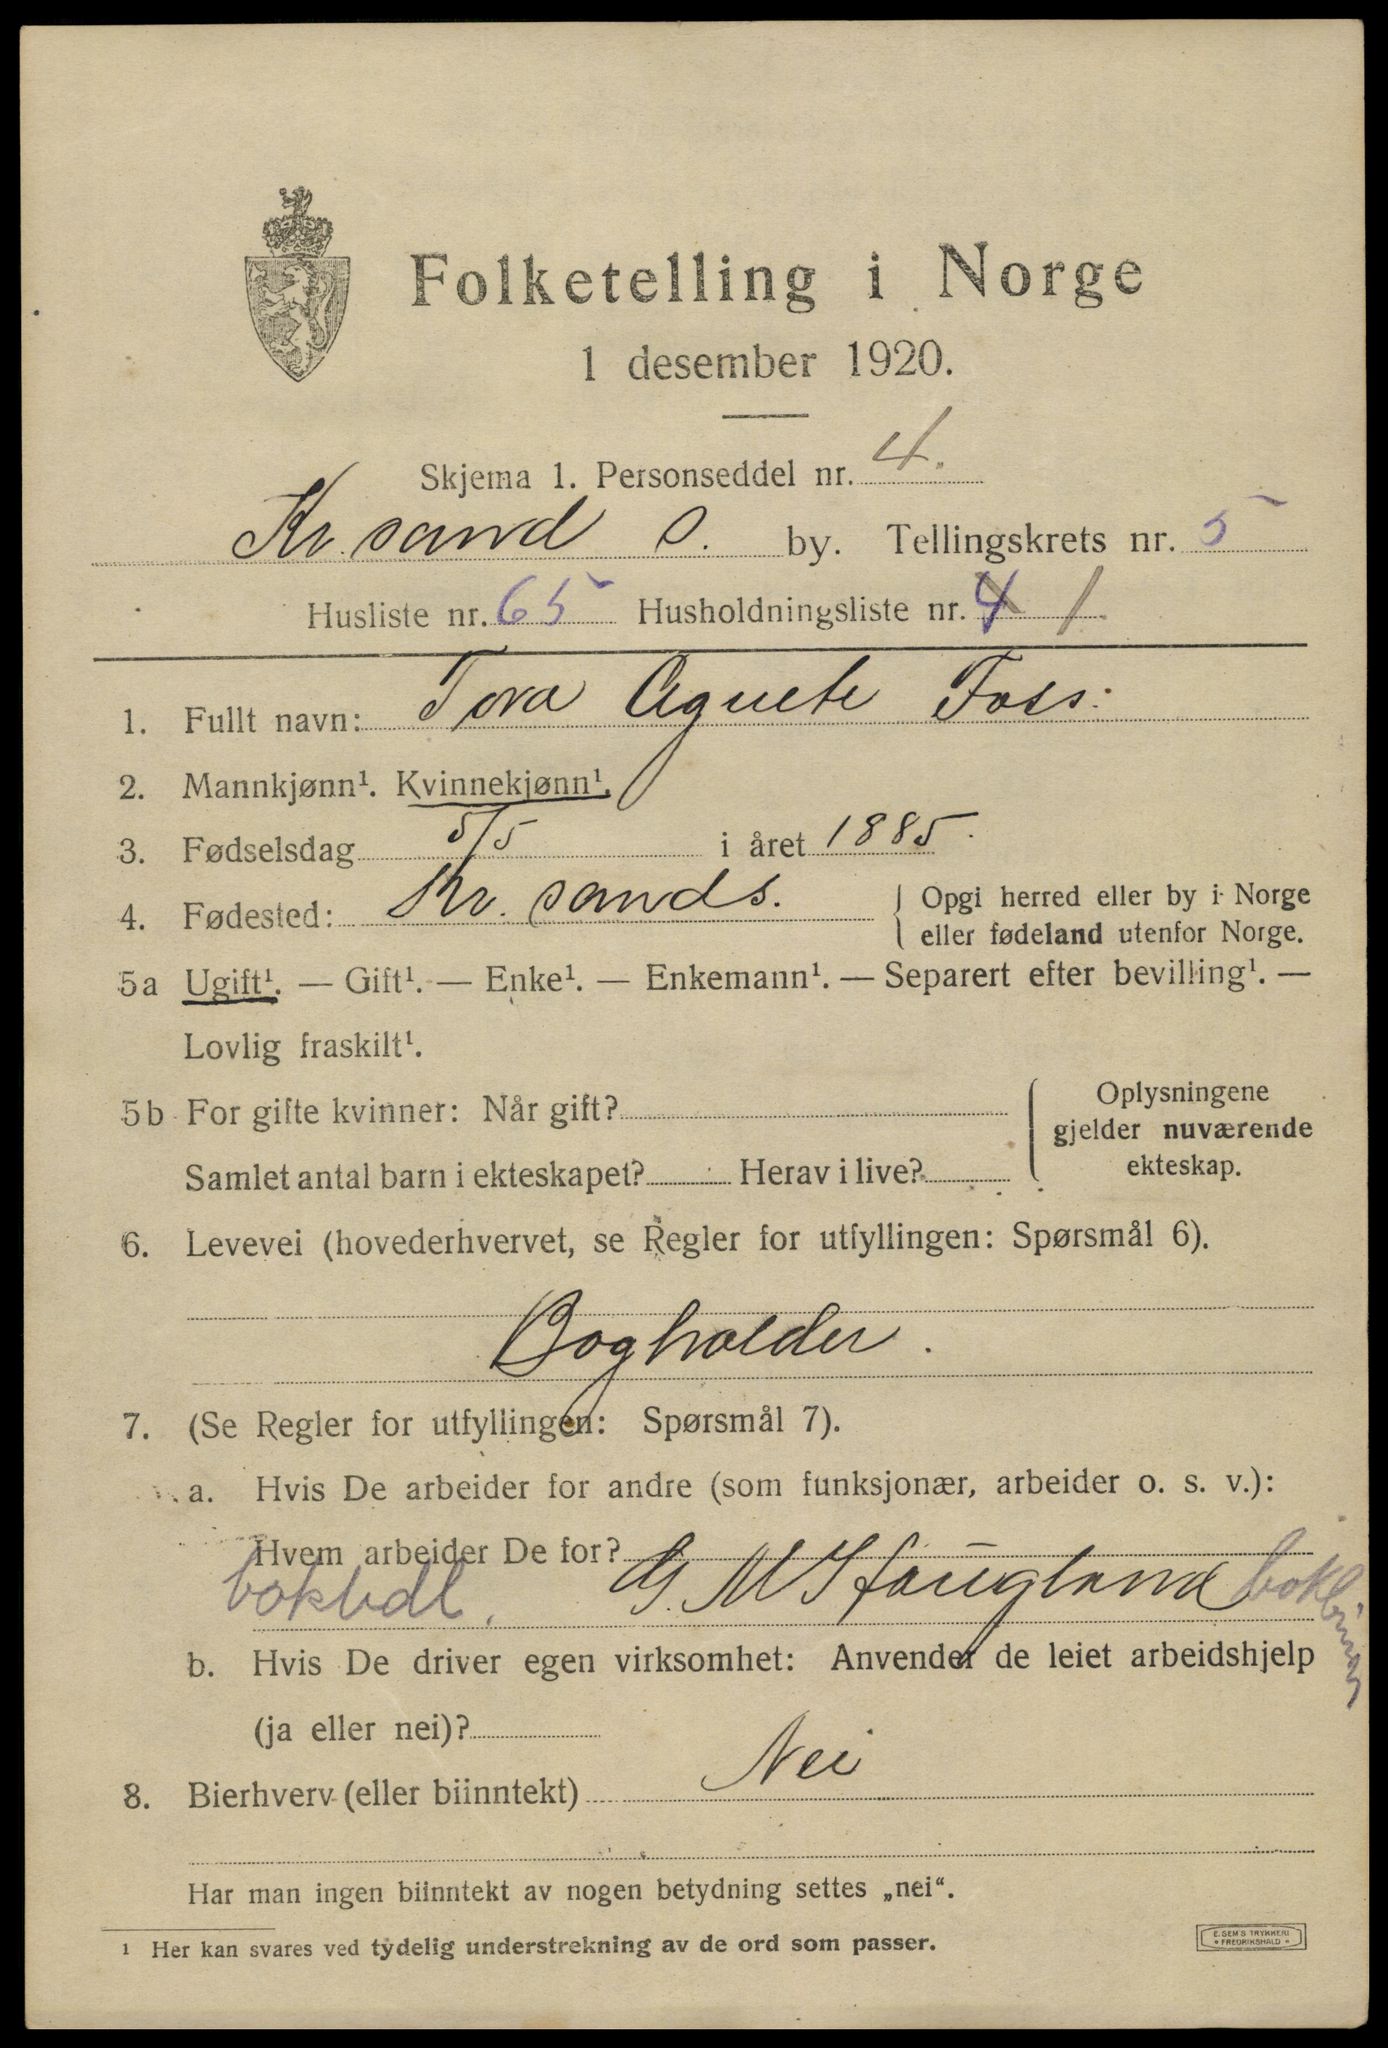 Folketelling i Norge
1 desember 1920.
Skjema 1. Personseddel nr. 4.
Kr. sand S. by. Tellingskrets nr. 5
Husliste nr. 65 Husholdningsliste nr. 4 1
1. Fullt navn: Tora Agnete Foss.
2. Mannkjønn¹. Kvinnekjønn¹.
3. Fødselsdag 5/5 i året 1885.
4. Fødested: Kr. sand S. { Opgi herred eller by i Norge
eller fødeland utenfor Norge.
5a Ugift¹. — Gift¹. — Enke¹. — Enkemann¹. — Separert efter bevilling¹. —
Lovlig fraskilt¹.
5b For gifte kvinner: Når gift?
Samlet antal barn i ekteskapet? Herav i live?
{ Oplysningene
gjelder nuværende
ekteskap.
6. Levevei (hovederhvervet, se Regler for utfyllingen: Spørsmål 6).
Bogholder.
7. (Se Regler for utfyllingen: Spørsmål 7).
a. Hvis De arbeider for andre (som funksjonær, arbeider o. s. v.):
Hvem arbeider De for?
bokhdl. G. M. Haugland
b. Hvis De driver egen virksomhet: Anvender de leiet arbeidshjelp
(ja eller nei)?
8. Bierhverv (eller biinntekt) Nei
Har man ingen biinntekt av nogen betydning settes „nei“.
¹ Her kan svares ved tydelig understrekning av de ord som passer.
E. SEM'S TRYKKERI
FREDRIKSHALD